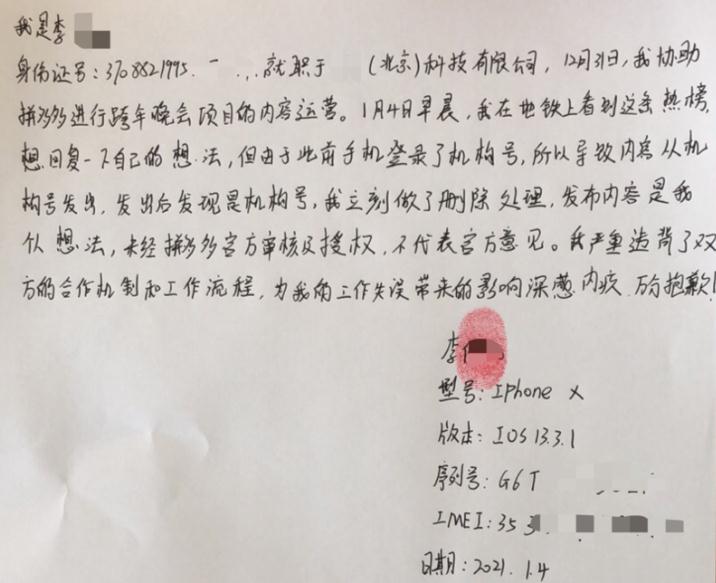 我是李
身份证号：3708821995. 就职于 （北京）科技有限公司，12月31日，我协助
拼多多进行跨年晚会项目的内容运营。1月4日早晨，我在地铁上看到这条热榜，
想回复一下自己的想法，但由于此前手机登录了机构号，所以导致内容从机
构号发出，发出后发现是机构号，我立刻做了删除处理，发布内容是我
个人想法，未经拼多多官方审核及授权，不代表官方意见。我严重违背了双
方的合作机制和工作流程，为我的工作失误带来的影响深感内疚，万分抱歉！
李
型号：Iphone X
版本：IOS 13.3.1
序列号：G6T
IMEI：353
日期：2021.1.4